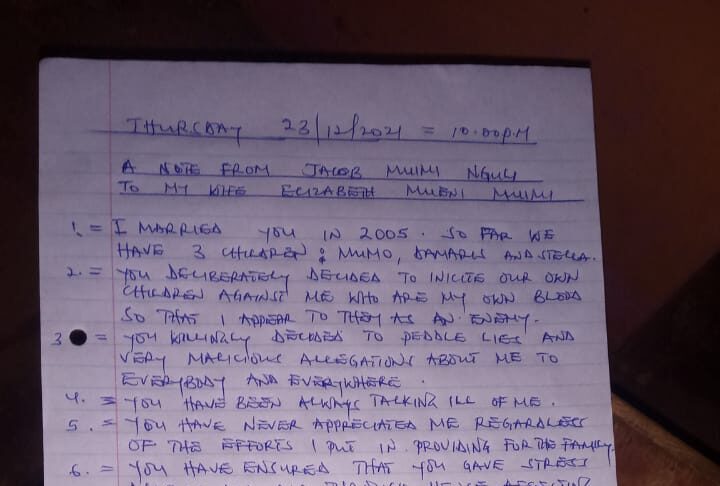 THURSDAY 23/12/2021 = 10.00P.M
A NOTE FROM JACOB MUIMI NGULI
TO MY WIFE ELIZABETH MUENI MUIMI
1. = I MARRIED YOU IN 2005. SO FAR WE
HAVE 3 CHILDREN; MUMO, DAMARIS AND STELLA.
2. = YOU DELIBERATELY DECIDED TO INICITE OUR OWN
CHILDREN AGAINST ME WHO ARE MY OWN BLOOD
SO THAT I APPEAR TO THEM AS AN ENEMY.
3 = YOU WILLINGLY DECIDED TO PEDDLE LIES AND
VERY MALICIOUS ALLEGATIONS ABOUT ME TO
EVERYBODY AND EVERYWHERE.
4. = YOU HAVE BEEN ALWAYS TALKING ILL OF ME.
5. = YOU HAVE NEVER APPRECIATED ME REGARDLESS
OF THE EFFORTS I PUT IN PROVIDING FOR THE FAMILY.
6. = YOU HAVE ENSURED THAT YOU GAVE STRESS